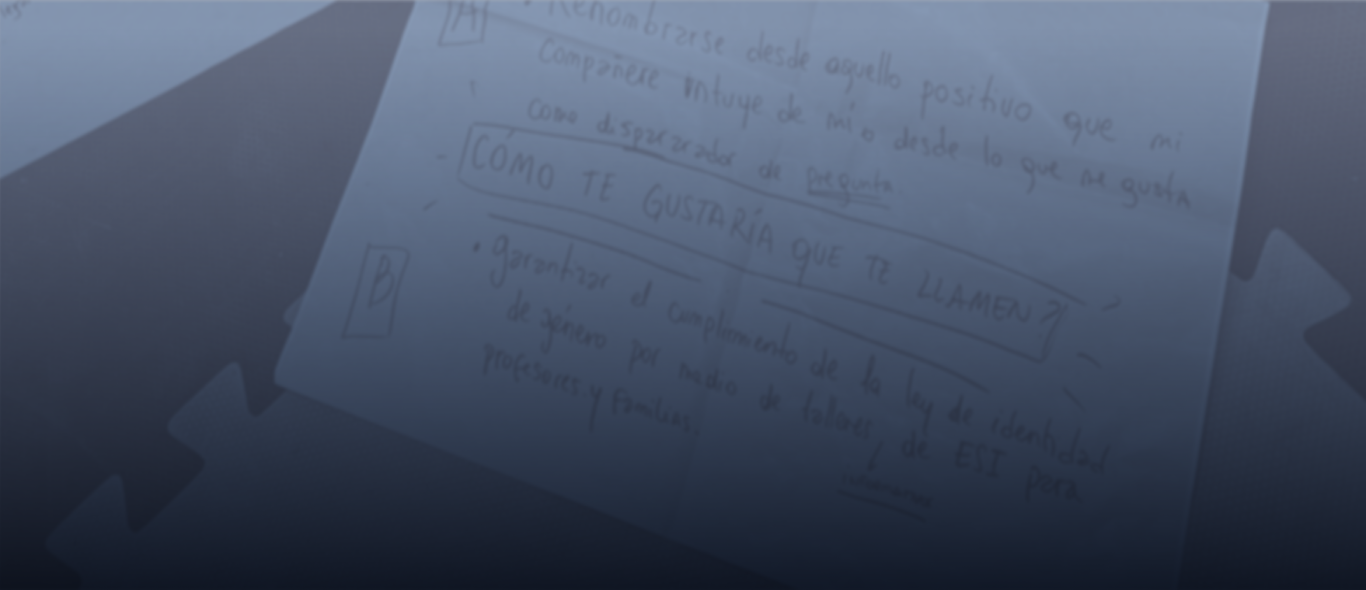 A
• Renombrarse desde aquello positivo que mi
compañere intuye de mí o desde lo que me gusta
como disparador de pregunta
CÓMO TE GUSTARÍA QUE TE LLAMEN?
B
• garantizar el cumplimiento de la ley de identidad
de género por medio de talleres de ESI para
profesores y familias.